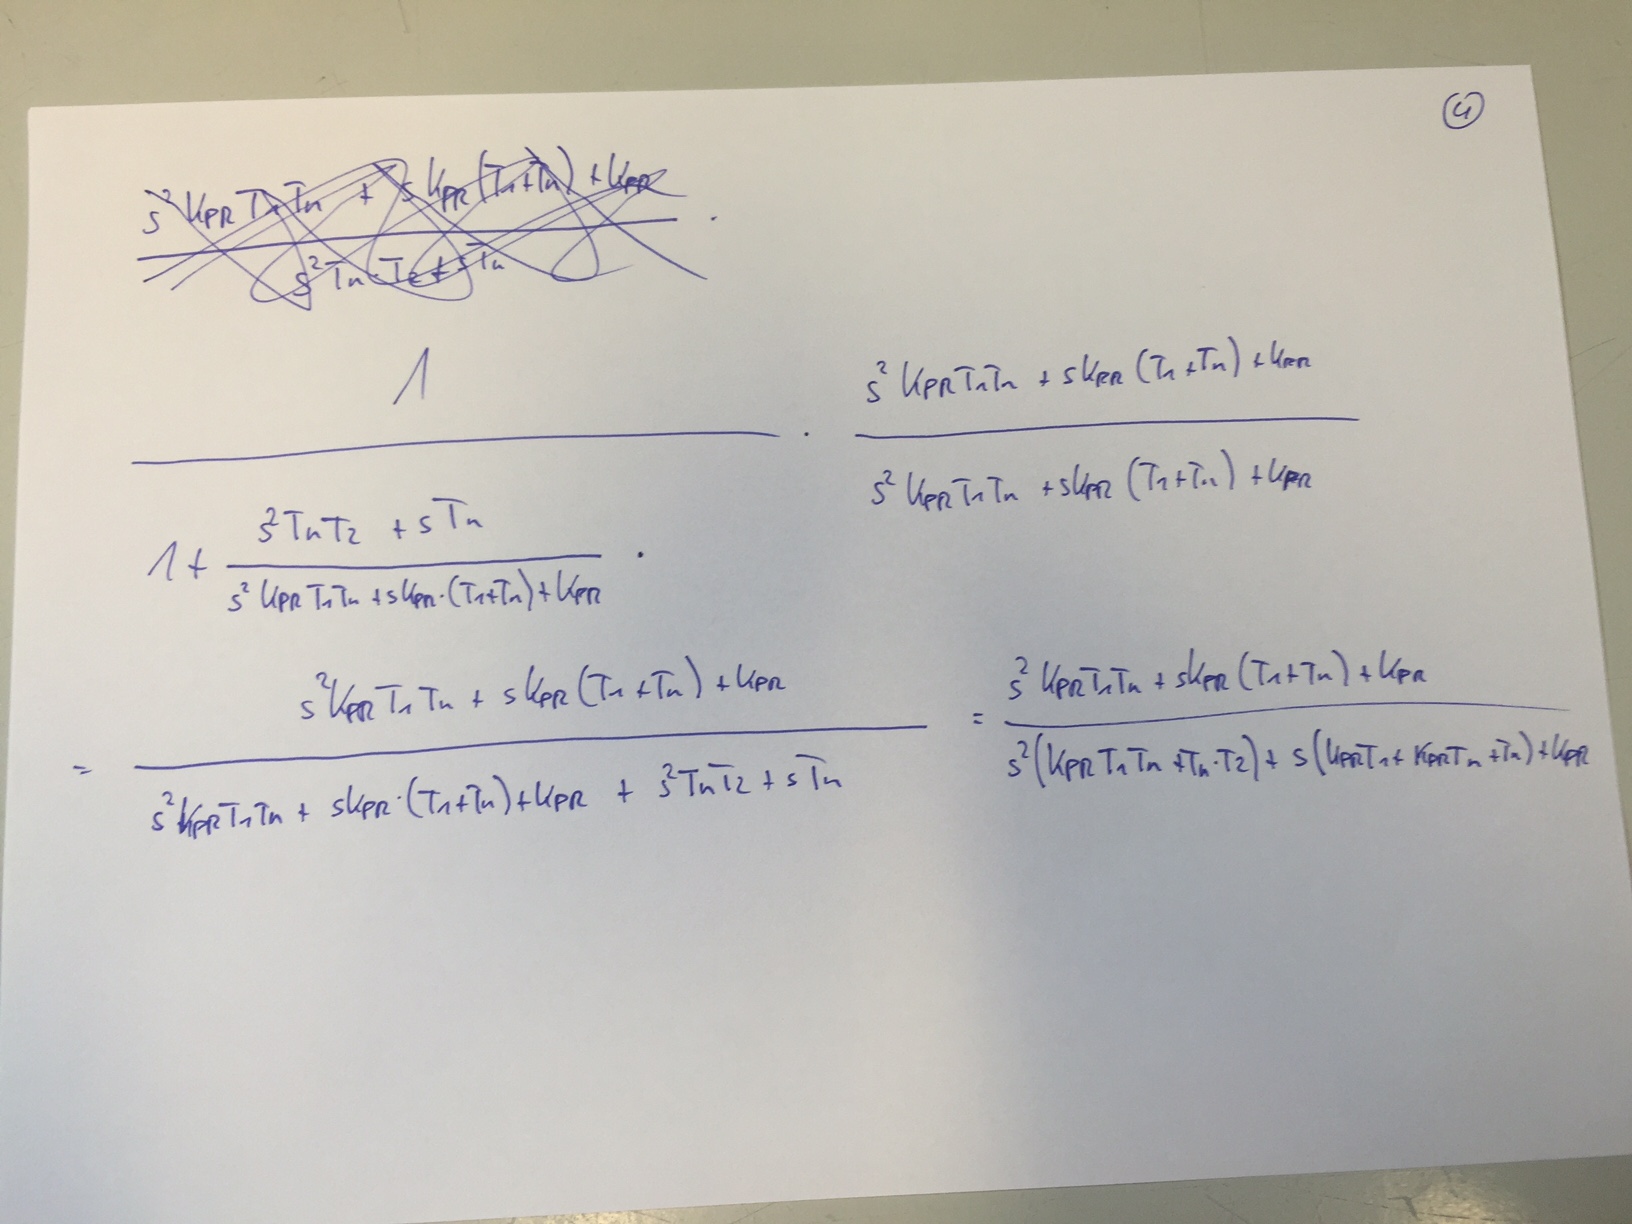 ④
s² K_PR T₁ Tₙ + s K_PR (T₁+Tₙ) + K_PR
s² Tₙ · T₂ + s Tₙ
·
1
1 + (s² Tₙ T₂ + s Tₙ) / (s² K_PR T₁ Tₙ + s K_PR · (T₁+Tₙ) + K_PR) ·
· (s² K_PR T₁ Tₙ + s K_PR (T₁+Tₙ) + K_PR) / (s² K_PR T₁ Tₙ + s K_PR (T₁+Tₙ) + K_PR)
= (s² K_PR T₁ Tₙ + s K_PR (T₁+Tₙ) + K_PR) / (s² K_PR T₁ Tₙ + s K_PR · (T₁+Tₙ) + K_PR + s² Tₙ T₂ + s Tₙ)
= (s² K_PR T₁ Tₙ + s K_PR (T₁+Tₙ) + K_PR) / (s² (K_PR T₁ Tₙ + Tₙ · T₂) + s (K_PR T₁ + K_PR Tₙ + Tₙ) + K_PR)